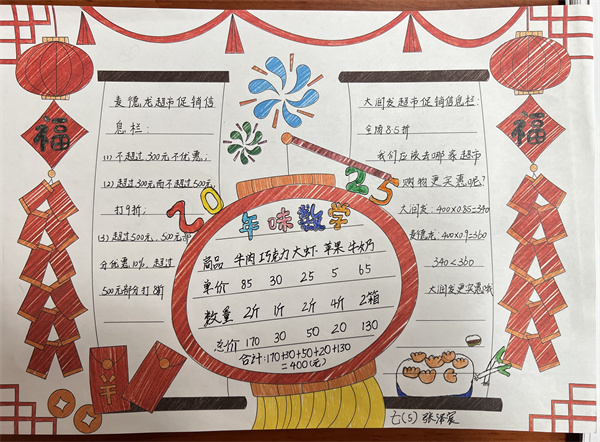 福
福
麦德龙超市促销信
息栏:
(1) 不超过300元不优惠;
(2) 超过300元而不超过500元,
打9折;
(3) 超过500元、500元部
分优惠10%,超过
500元部分打8折
2025
年味数学
商品 牛肉 巧克力 大虾 苹果 牛奶
单价 85 30 25 5 65
数量 2斤 1斤 2斤 4斤 2箱
总价 170 30 50 20 130
合计:170+30+50+20+130
=400(元)
大润发超市促销信息栏:
全场8.5折
我们应该去哪家超市
购物更实惠呢?
大润发:400×0.85=340
麦德龙:400×0.9=360
340<360
大润发更实惠哦
七(5) 张